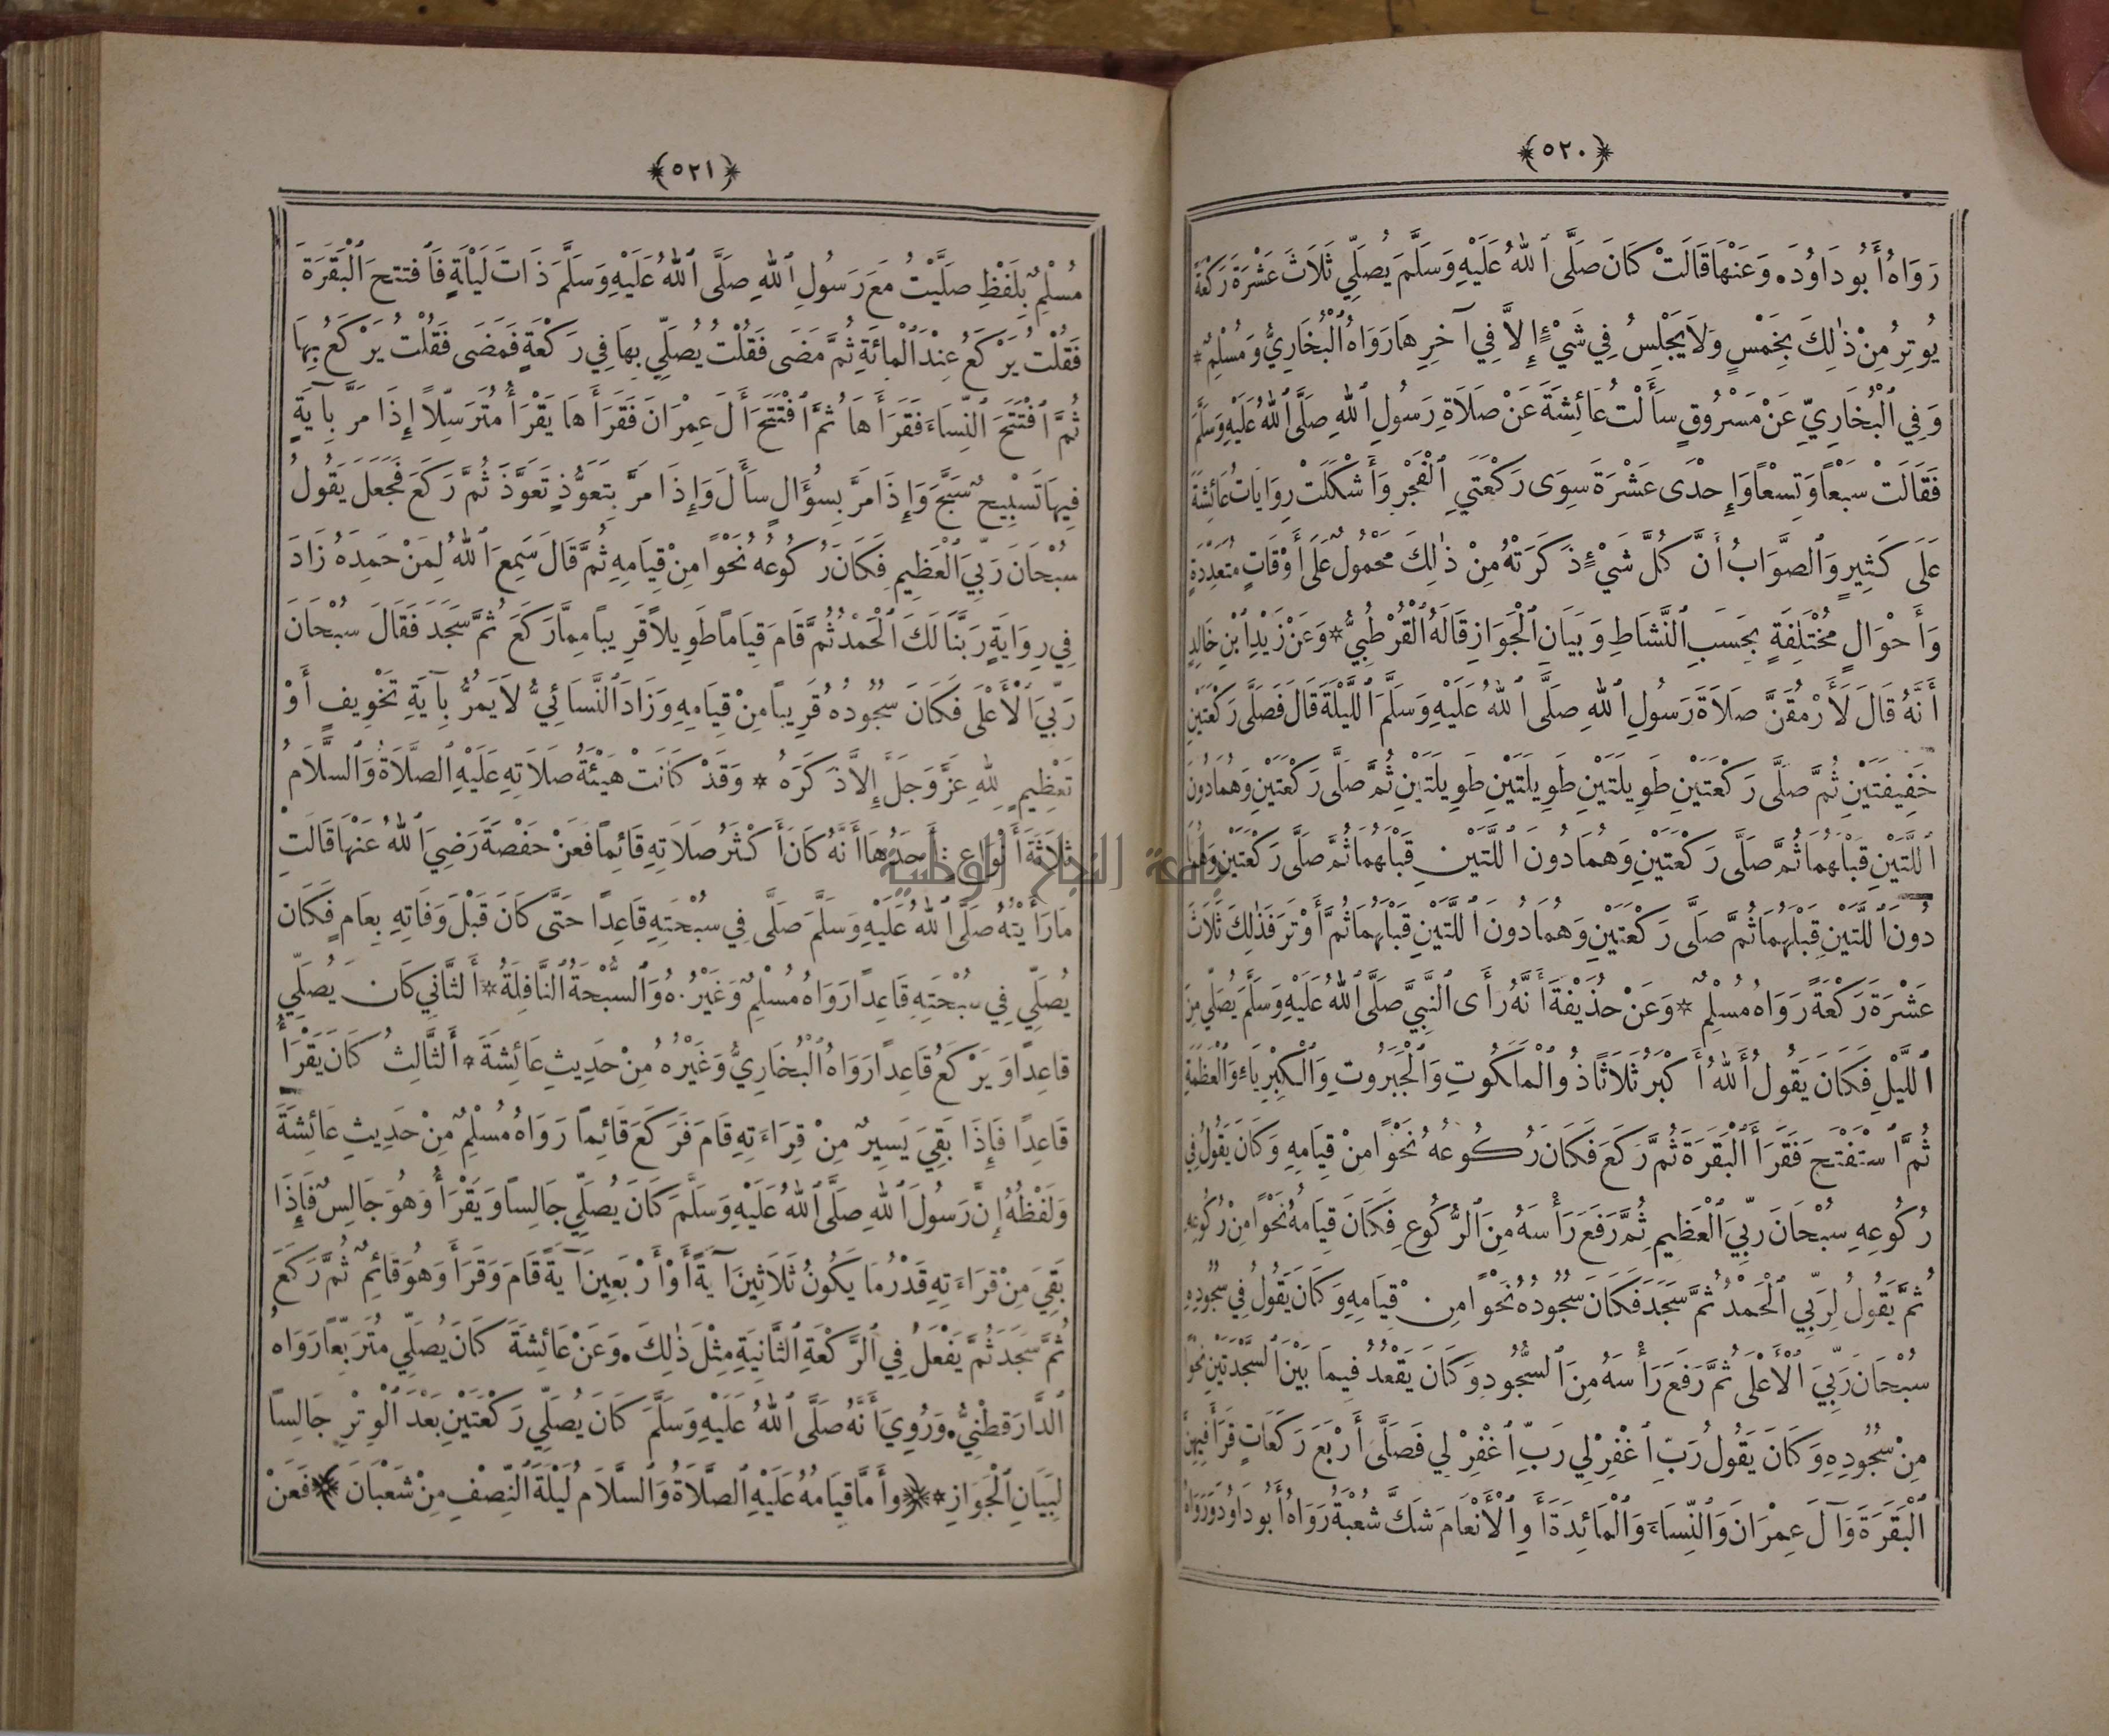 ﴿٥٢٠﴾
رَوَاهُ أَبُو دَاوُدَ. وَعَنْهَا قَالَتْ كَانَ صَلَّى ٱللهُ عَلَيْهِ وَسَلَّمَ يُصَلِّي ثَلَاثَ عَشْرَةَ رَكْعَةً
يُوتِرُ مِنْ ذٰلِكَ بِخَمْسٍ وَلَا يَجْلِسُ فِي شَيْءٍ إِلاَّ فِي آخِرِهَا رَوَاهُ ٱلْبُخَارِيُّ وَمُسْلِمٌ *
وَفِي ٱلْبُخَارِيِّ عَنْ مَسْرُوقٍ سَأَلْتُ عَائِشَةَ عَنْ صَلَاةِ رَسُولِ ٱللهِ صَلَّى ٱللهُ عَلَيْهِ وَسَلَّمَ
فَقَالَتْ سَبْعاً وَتِسْعاً وَإِحْدَى عَشْرَةَ سِوَى رَكْعَتَيِ ٱلْفَجْرِ وَأَشْكَلَتْ رِوَايَاتُ عَائِشَةَ
عَلَى كَثِيرٍ وَٱلصَّوَابُ أَنَّ كُلَّ شَيْءٍ ذَكَرَتْهُ مِنْ ذٰلِكَ مَحْمُولٌ عَلَى أَوْقَاتٍ مُتَعَدِّدَةٍ
وَأَحْوَالٍ مُخْتَلِفَةٍ بِحَسَبِ ٱلنَّشَاطِ وَبَيَانِ ٱلْجَوَازِ قَالَهُ ٱلْقُرْطُبِيُّ * وَعَنْ زَيْدِ ٱبْنِ خَالِدٍ
أَنَّهُ قَالَ لَأَرْمُقَنَّ صَلَاةَ رَسُولِ ٱللهِ صَلَّى ٱللهُ عَلَيْهِ وَسَلَّمَ ٱللَّيْلَةَ قَالَ فَصَلَّى رَكْعَتَيْنِ
خَفِيفَتَيْنِ ثُمَّ صَلَّى رَكْعَتَيْنِ طَوِيلَتَيْنِ طَوِيلَتَيْنِ طَوِيلَتَيْنِ ثُمَّ صَلَّى رَكْعَتَيْنِ وَهُمَا دُونَ
ٱللَّتَيْنِ قَبْلَهُمَا ثُمَّ صَلَّى رَكْعَتَيْنِ وَهُمَا دُونَ ٱللَّتَيْنِ قَبْلَهُمَا ثُمَّ صَلَّى رَكْعَتَيْنِ وَهُمَا
دُونَ ٱللَّتَيْنِ قَبْلَهُمَا ثُمَّ صَلَّى رَكْعَتَيْنِ وَهُمَا دُونَ ٱللَّتَيْنِ قَبْلَهُمَا ثُمَّ أَوْتَرَ فَذٰلِكَ ثَلَاثَ
عَشْرَةَ رَكْعَةً رَوَاهُ مُسْلِمٌ * وَعَنْ حُذَيْفَةَ أَنَّهُ رَأَى ٱلنَّبِيَّ صَلَّى ٱللهُ عَلَيْهِ وَسَلَّمَ يُصَلِّي مِنَ
ٱللَّيْلِ فَكَانَ يَقُولُ أَللهُ أَكْبَرُ ثَلَاثًا ذُو ٱلْمَلَكُوتِ وَٱلْجَبَرُوتِ وَٱلْكِبْرِيَاءِ وَٱلْعَظَمَةِ
ثُمَّ ٱسْتَفْتَحَ فَقَرَأَ ٱلْبَقَرَةَ ثُمَّ رَكَعَ فَكَانَ رُكُوعُهُ نَحْوًا مِنْ قِيَامِهِ وَكَانَ يَقُولُ فِي
رُكُوعِهِ سُبْحَانَ رَبِّيَ ٱلْعَظِيمِ ثُمَّ رَفَعَ رَأْسَهُ مِنَ ٱلرُّكُوعِ فَكَانَ قِيَامُهُ نَحْوًا مِنْ رُكُوعِهِ
ثُمَّ يَقُولُ لِرَبِّي ٱلْحَمْدُ ثُمَّ سَجَدَ فَكَانَ سُجُودُهُ نَحْوًا مِنْ قِيَامِهِ وَكَانَ يَقُولُ فِي سُجُودِهِ
سُبْحَانَ رَبِّيَ ٱلْأَعْلَى ثُمَّ رَفَعَ رَأْسَهُ مِنَ ٱلسُّجُودِ وَكَانَ يَقْعُدُ فِيمَا بَيْنَ ٱلسَّجْدَتَيْنِ نَحْوًا
مِنْ سُجُودِهِ وَكَانَ يَقُولُ رَبِّ ٱغْفِرْ لِي رَبِّ ٱغْفِرْ لِي فَصَلَّى أَرْبَعَ رَكَعَاتٍ قَرَأَ فِيهِنَّ
ٱلْبَقَرَةَ وَآلَ عِمْرَانَ وَٱلنِّسَاءَ وَٱلْمَائِدَةَ أَوِ ٱلْأَنْعَامَ شَكَّ شُعْبَةُ رَوَاهُ أَبُو دَاوُدَ وَرَوَاهُ
﴿٥٢١﴾
مُسْلِمٌ بِلَفْظِ صَلَّيْتُ مَعَ رَسُولِ ٱللهِ صَلَّى ٱللهُ عَلَيْهِ وَسَلَّمَ ذَاتَ لَيْلَةٍ فَٱفْتَتَحَ ٱلْبَقَرَةَ
فَقُلْتُ يَرْكَعُ عِنْدَ ٱلْمِائَةِ ثُمَّ مَضَى فَقُلْتُ يُصَلِّي بِهَا فِي رَكْعَةٍ فَمَضَى فَقُلْتُ يَرْكَعُ بِهَا
ثُمَّ ٱفْتَتَحَ ٱلنِّسَاءَ فَقَرَأَهَا ثُمَّ ٱفْتَتَحَ آلَ عِمْرَانَ فَقَرَأَهَا يَقْرَأُ مُتَرَسِّلاً إِذَا مَرَّ بِآيَةٍ
فِيهَا تَسْبِيحٌ سَبَّحَ وَإِذَا مَرَّ بِسُؤَالٍ سَأَلَ وَإِذَا مَرَّ بِتَعَوُّذٍ تَعَوَّذَ ثُمَّ رَكَعَ فَجَعَلَ يَقُولُ
سُبْحَانَ رَبِّيَ ٱلْعَظِيمِ فَكَانَ رُكُوعُهُ نَحْوًا مِنْ قِيَامِهِ ثُمَّ قَالَ سَمِعَ ٱللهُ لِمَنْ حَمِدَهُ زَادَ
فِي رِوَايَةٍ رَبَّنَا لَكَ ٱلْحَمْدُ ثُمَّ قَامَ قِيَامًا طَوِيلاً قَرِيبًا مِمَّا رَكَعَ ثُمَّ سَجَدَ فَقَالَ سُبْحَانَ
رَبِّيَ ٱلْأَعْلَى فَكَانَ سُجُودُهُ قَرِيبًا مِنْ قِيَامِهِ وَزَادَ ٱلنَّسَائِيُّ لَا يَمُرُّ بِآيَةِ تَخْوِيفٍ أَوْ
تَعْظِيمٍ لِلّٰهِ عَزَّ وَجَلَّ إِلاَّ ذَكَرَهُ * وَقَدْ كَانَتْ هَيْئَةُ صَلَاتِهِ عَلَيْهِ ٱلصَّلَاةُ وَٱلسَّلَامُ
ثَلَاثَةَ أَنْوَاعٍ أَحَدُهَا أَنَّهُ كَانَ أَكْثَرُ صَلَاتِهِ قَائِمًا فَعَنْ حَفْصَةَ رَضِيَ ٱللهُ عَنْهَا قَالَتْ
مَا رَأَيْتُهُ صَلَّى ٱللهُ عَلَيْهِ وَسَلَّمَ صَلَّى فِي سُبْحَتِهِ قَاعِدًا حَتَّى كَانَ قَبْلَ وَفَاتِهِ بِعَامٍ فَكَانَ
يُصَلِّي فِي سُبْحَتِهِ قَاعِدًا رَوَاهُ مُسْلِمٌ وَغَيْرُهُ وَٱلسُّبْحَةُ ٱلنَّافِلَةُ * أَلثَّانِي كَانَ يُصَلِّي
قَاعِدًا وَيَرْكَعُ قَاعِدًا رَوَاهُ ٱلْبُخَارِيُّ وَغَيْرُهُ مِنْ حَدِيثِ عَائِشَةَ * أَلثَّالِثُ كَانَ يَقْرَأُ
قَاعِدًا فَإِذَا بَقِيَ يَسِيرٌ مِنْ قِرَاءَتِهِ قَامَ فَرَكَعَ قَائِمًا رَوَاهُ مُسْلِمٌ مِنْ حَدِيثِ عَائِشَةَ
وَلَفْظُهُ إِنَّ رَسُولَ ٱللهِ صَلَّى ٱللهُ عَلَيْهِ وَسَلَّمَ كَانَ يُصَلِّي جَالِسًا وَيَقْرَأُ وَهُوَ جَالِسٌ فَإِذَا
بَقِيَ مِنْ قِرَاءَتِهِ قَدْرُ مَا يَكُونُ ثَلَاثِينَ آيَةً أَوْ أَرْبَعِينَ آيَةً قَامَ وَقَرَأَ وَهُوَ قَائِمٌ ثُمَّ رَكَعَ
ثُمَّ سَجَدَ ثُمَّ يَفْعَلُ فِي ٱلرَّكْعَةِ ٱلثَّانِيَةِ مِثْلَ ذٰلِكَ. وَعَنْ عَائِشَةَ كَانَ يُصَلِّي مُتَرَبِّعًا رَوَاهُ
ٱلدَّارَقُطْنِيُّ. وَرُوِيَ أَنَّهُ صَلَّى ٱللهُ عَلَيْهِ وَسَلَّمَ كَانَ يُصَلِّي رَكْعَتَيْنِ بَعْدَ ٱلْوِتْرِ جَالِسًا
لِبَيَانِ ٱلْجَوَازِ * ﴿وأَمَّا قِيَامُهُ عَلَيْهِ ٱلصَّلَاةُ وَٱلسَّلَامُ لَيْلَةَ ٱلنِّصْفِ مِنْ شَعْبَانَ﴾ فَعَنْ
جامعة النجاح الوطنية